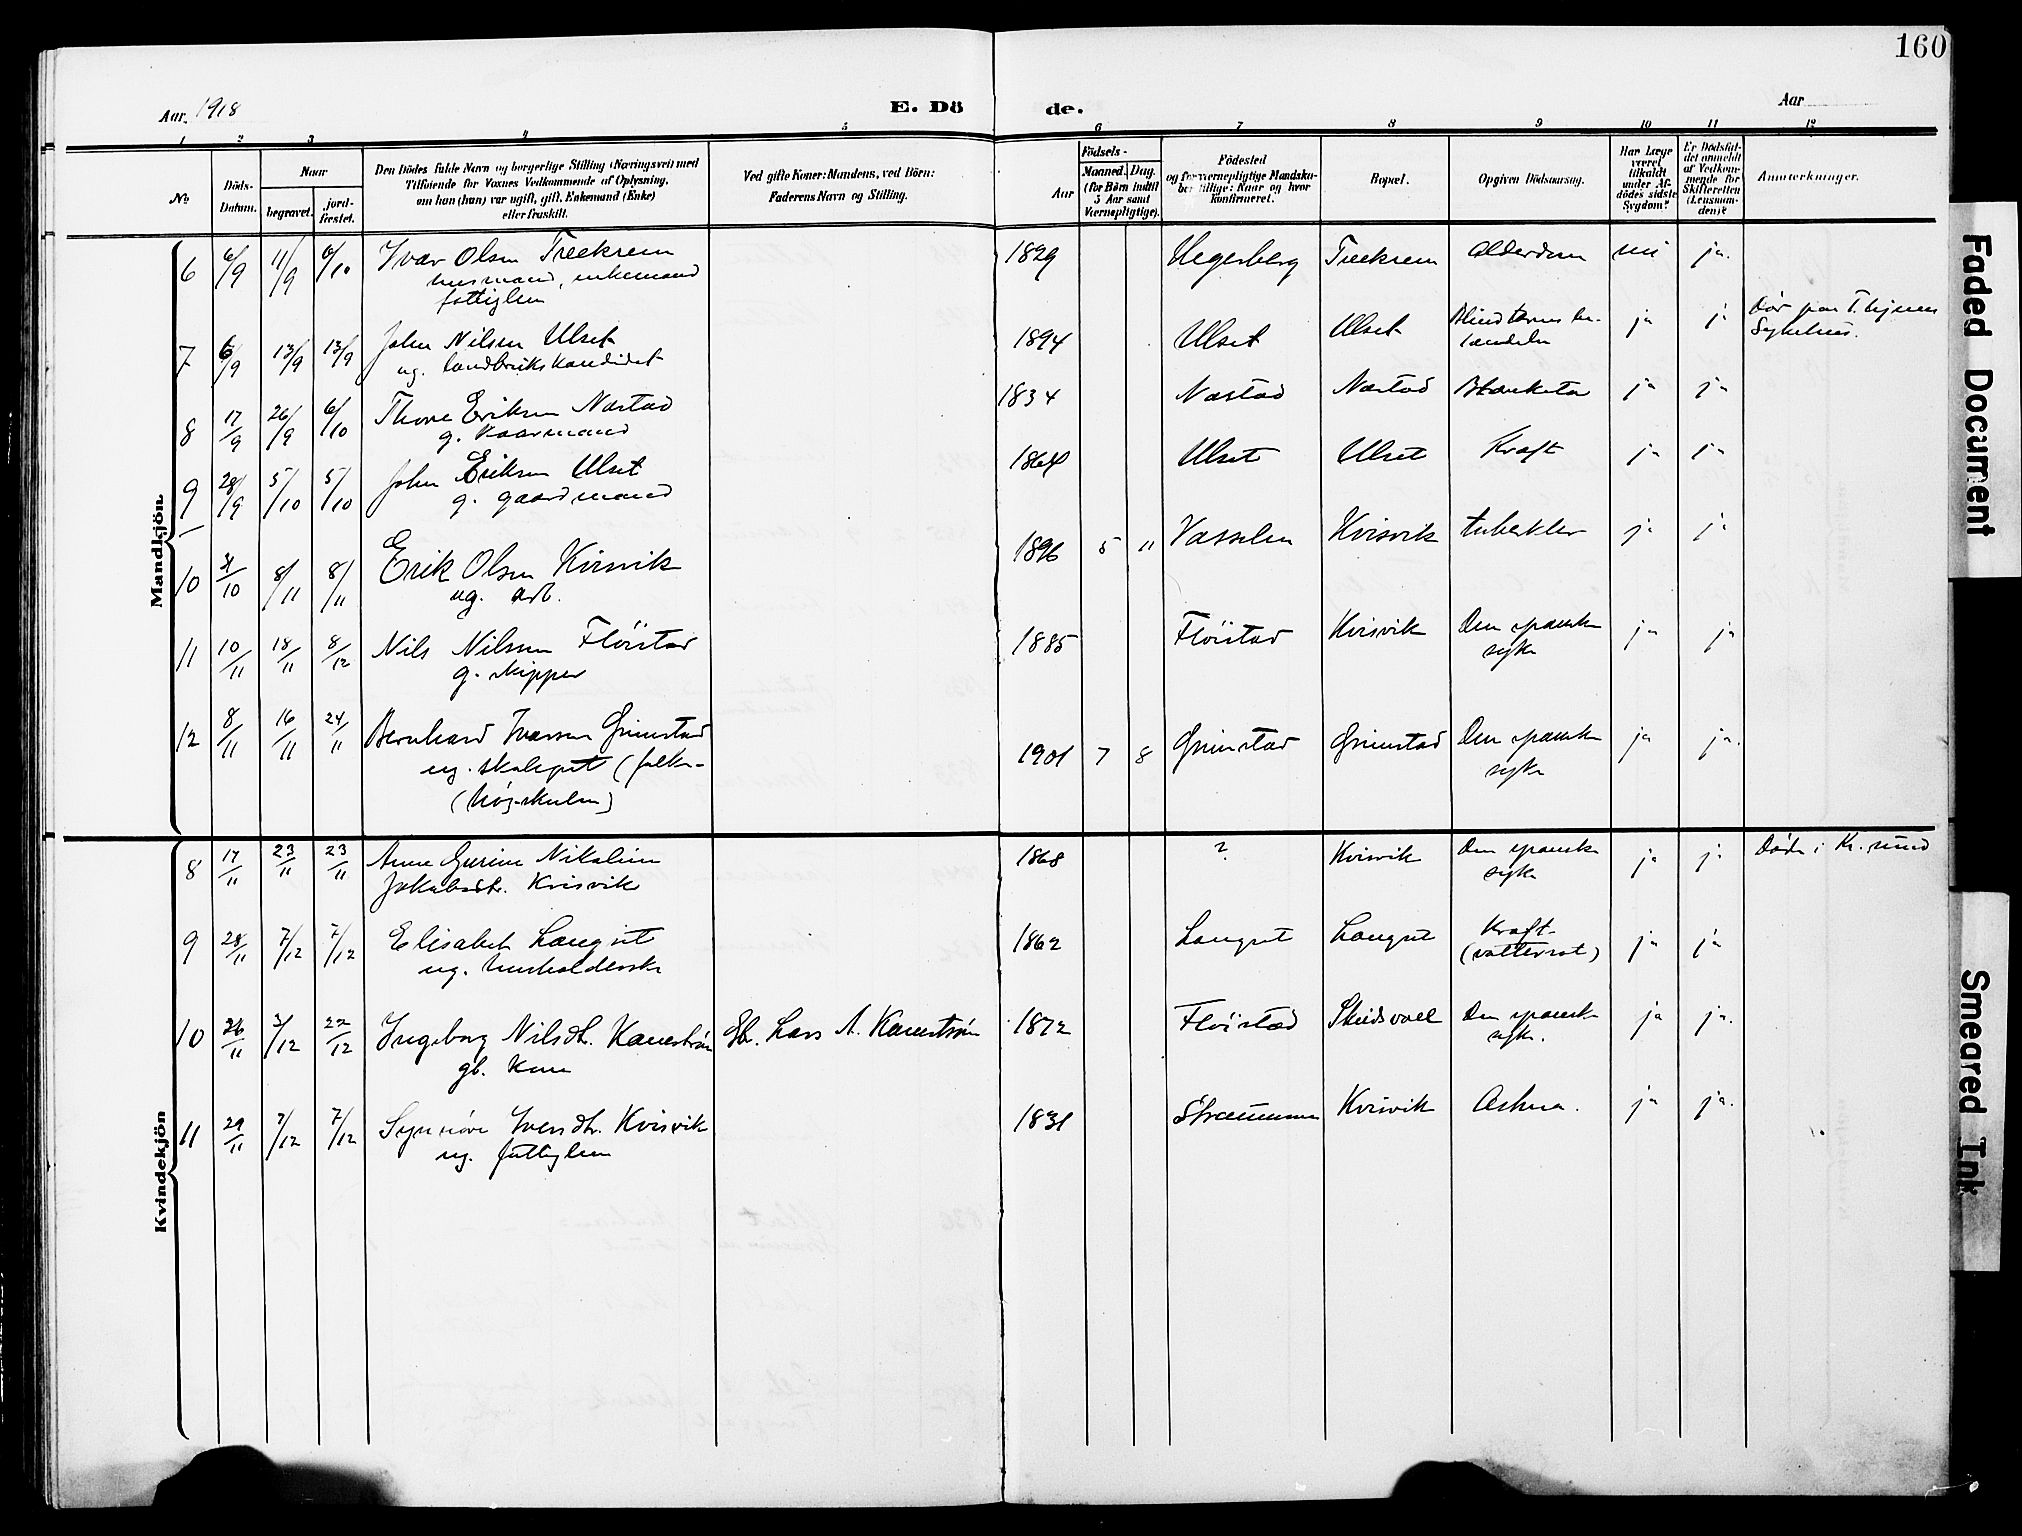 160
Aar. 1918
E. Dö
de.
Aar
1 2 3 4 5 6 7 8 9 10 11 12
No
Döds-
Datum.
Naar
begravet.
jord-
fæstet.
Den Dödes fulde Navn og borgerlige Stilling (Næringsvei) med
Tilföiende for Voxnes Vedkommende af Oplysning,
om han (hun) var ugift, gift, Enkemand (Enke)
eller fraskilt.
Ved gifte Koner: Mandens, ved Börn:
Faderens Navn og Stilling.
Födsels-
Aar
Maaned. Dag.
(for Börn indtil
5 Aar samt
Værnepligtige).
Födested
og for værnepligtige Mandska-
ber tillige: Naar og hvor
konfirmeret.
Bopæl.
Opgiven Dödsaarsag.
Har Læge
været
tilkaldt
under Af-
dödes sidste
Sygdom?
Er Dödsfal-
det anmeldt
af Vedkom-
mende for
Skifteretten
(Lensman-
den)?
Anmærkninger.
Mandkjön
6 6/9 11/9 6/10 Ivar Olsen Treekrem 1829 Hegerberg Treekrem Alderdom nei ja.
husmand, enkemand
fattiglem
7 6/9 13/9 13/9 John Nilsen Ulset 1894 Ulset Ulset Blindtarms be- ja ja Dör paa T.hjems
ug. landbrukskandidat Sykehus.
8 17/9 26/9 6/10 Thore Eriksen Nastad 1834 Nastad Nastad ja ja
g. Kaarmand
9 28/9 5/10 5/10 John Eriksen Ulset 1864 Ulset Ulset Kraft ja ja
g. gaardmand
10 31/10 8/11 8/11 Erik Olsen Kvisvik 1896 5 11 Kvisvik tuberkler ja ja
ug. arb.
11 10/11 18/11 8/12 Nils Nilsen Flöistad 1885 Flöistad Kvisvik Den spanske ja ja
g. skipper syke
12 8/11 16/11 24/11 Bernhard Ivarsen Grimstad 1901 7 8 Grimstad Grimstad Den spanske ja ja.
ug. skulegut (folke- syke
(högskulen)
Kvindekjön
8 17/11 23/11 23/11 Anne Gurine Nikoline 1868 ? Kvisvik Den spanske ja ja Döde i Kr.sund
Jakobsdtr. Kvisvik syke
9 28/11 7/12 7/12 Elisabet Langset 1862 Langset Langset Kraft- ja ja
ug. husholderske (vattersot)
10 26/11 3/12 22/12 Ingeborg Nilsdt. Kanestrøm Gb. Lars A. Kanestrøm 1872 Flöistad Skeidsvoll Den spanske ja ja.
gb. Kone syke.
11 29/11 7/12 7/12 Synnöve Iversdt. Kvisvik 1831 Strømmen Kvisvik Astma. ja ja.
ug. fattiglem
Faded Document
Smeared Ink